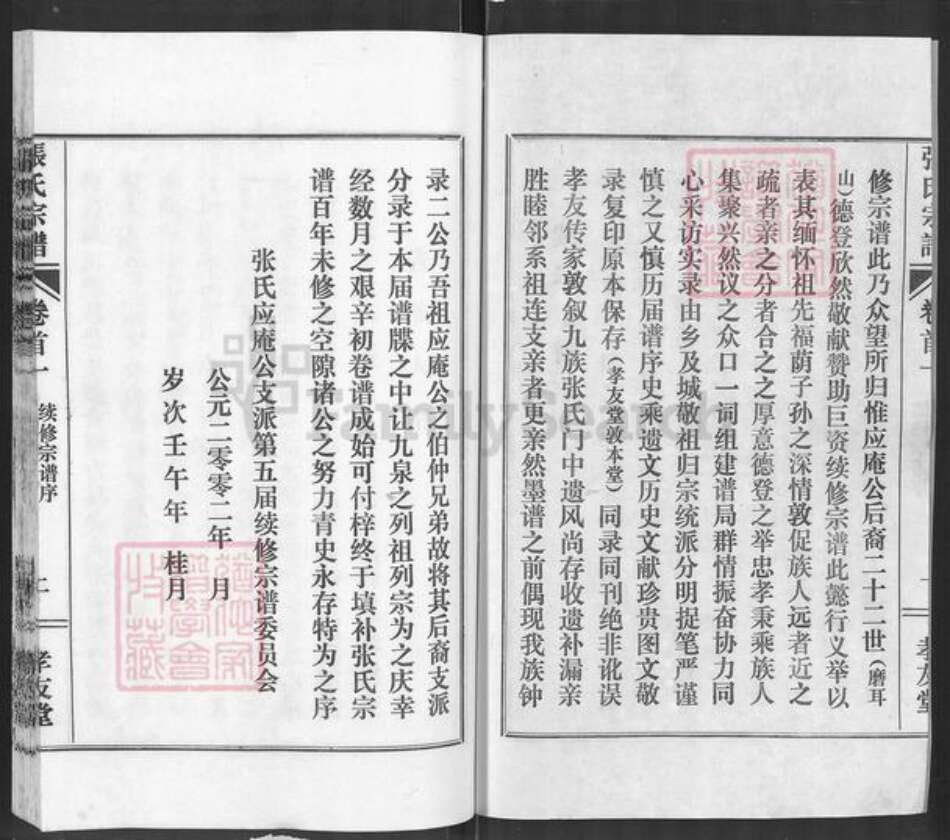 修宗谱此乃众望所归惟应庵公后裔二十二世(磨耳
山)德登欣然敬献赞助巨资续修宗谱此懿行义举以
表其缅怀祖先福荫子孙之深情敦促族人远者近之
疏者亲之分者合之之厚意德登之举忠孝秉乘族人
集聚兴然议之众口一词组建谱局群情振奋协力同
心采访实录由乡及城敬祖归宗统派分明捉笔严谨
慎之又慎历届谱序史乘遗文历史文献珍贵图文敬
录复印原本保存(孝友堂敦本堂)同录同刊绝非讹误
孝友传家敦叙九族张氏门中遗风尚存收遗补漏亲
胜睦邻系祖连支亲者更亲然墨谱之前偶现我族钟
录二公乃吾祖应庵公之伯仲兄弟故将其后裔支派
分录于本届谱牒之中让九泉之列祖列宗为之庆幸
经数月之艰辛初卷谱成始可付梓终于填补张氏宗
谱百年未修之空隙诸公之努力青史永存特为之序
张氏应庵公支派第五届续修宗谱委员会
公元二零零二年 月
岁次壬午年 桂月
張氏宗譜
卷首一
续修宗谱序
上
孝友堂
FamilySearch